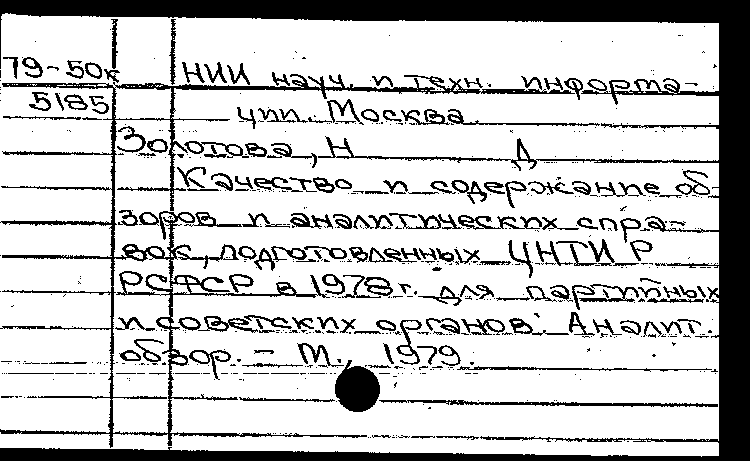 79-50к НИИ науч. и техн. информа-
5185 ции. Москва.
Золотова, Н Д
Качество и содержание об-
зоров и аналитических спра-
вок, подготовленных ЦНТИ Р
РСФСР в 1978 г. для партийных
и советских органов: Аналит.
обзор. – М., 1979.